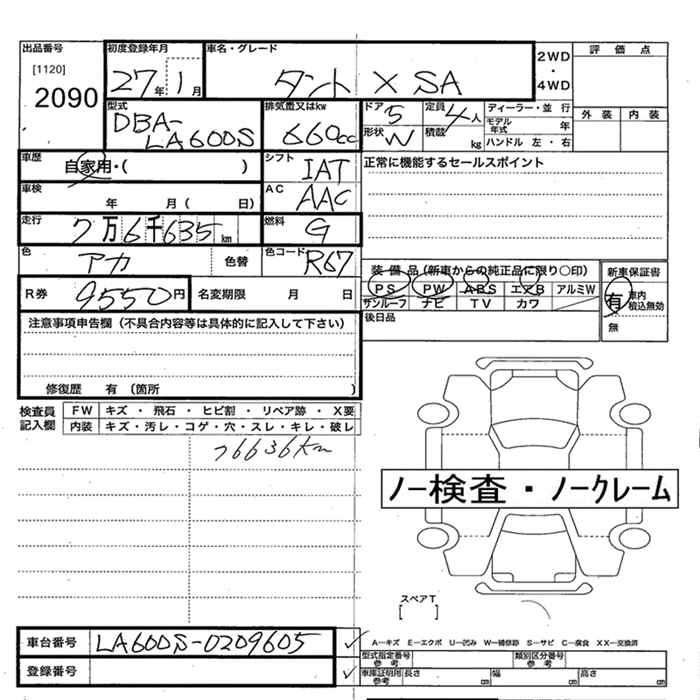 出品番号
[1120]
2090
初度登録年月
27年 1月
車名・グレード
タント X SA
2WD
・
4WD
評価点
外装 内装
型式
DBA-
LA600S
排気量又はkw
660cc
ドア 5
形状 W
定員 4人
積載 kg
ディーラー・並行
モデル年式 年
ハンドル 左・右
車歴
自家用・( )
シフト
IAT
正常に機能するセールスポイント
車検
年 月( 日)
AC
AAC
走行
7万6千635km
燃料
G
色
アカ
色替
色コード
R67
R券
9550円
名変期限 月 日
装備品(新車からの純正品に限り○印)
PS PW ABS エアB アルミW
サンルーフ ナビ TV カワ
新車保証書
有 車内積込無効
無
後日品
注意事項申告欄(不具合内容等は具体的に記入して下さい)
修復歴 有 (箇所 )
検査員記入欄
FW キズ・飛石・ヒビ割・リペア跡・X要
内装 キズ・汚レ・コゲ・穴・スレ・キレ・破レ
76636km
ノー検査・ノークレーム
スペアT
[ ]
車台番号
LA600S-0209605
登録番号
A―キズ E―エクボ U―凹み W―補修跡 S―サビ C―腐食 XX―交換済
型式指定番号
参考
類別区分番号
参考
車庫証明用
参考
長さ cm
幅 cm
高さ cm